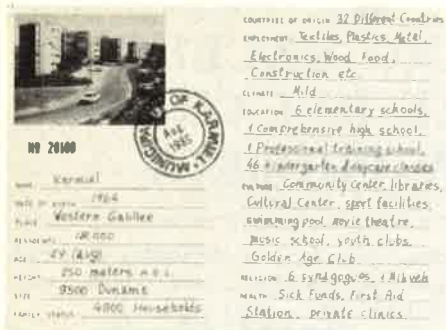 MUNICIPALITY OF KARMIEL
Aug. 1985
Nº 20100
NAME Karmiel
DATE OF BIRTH 1964
PLACE Western Galilee
RESIDENTS 18,000
AGE 24 (avg)
HEIGHT 250 meters a.s.l.
SIZE 9500 Dunams
FAMILY STATUS 4800 Households
COUNTRIES OF ORIGIN 32 Different Countries
EMPLOYMENT Textiles, Plastics, Metal,
Electronics, Wood, Food,
Construction etc
CLIMATE Mild
EDUCATION 6 elementary schools,
1 Comprehensive high school,
1 Professional training school,
46 Kindergarten & daycare classes
CULTURE Community center, libraries,
Cultural Center, sport facilities,
swimming pool, movie theatre,
music school, youth clubs,
Golden Age Club
RELIGION 6 synagogues, 1 Mikveh
HEALTH Sick Funds, First Aid
Station, private clinics